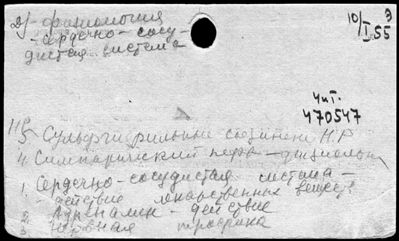 2) физиология
- сердечно-сосу-
дистая система
10/I 55
Чит.
470547
5 Сульфгидрильные соединен.
4. Симпатический нерв - физиология
1. Сердечно-сосудистая система -
действие лекарственных веществ
2. Адреналин - действие
3. Нервная трофика